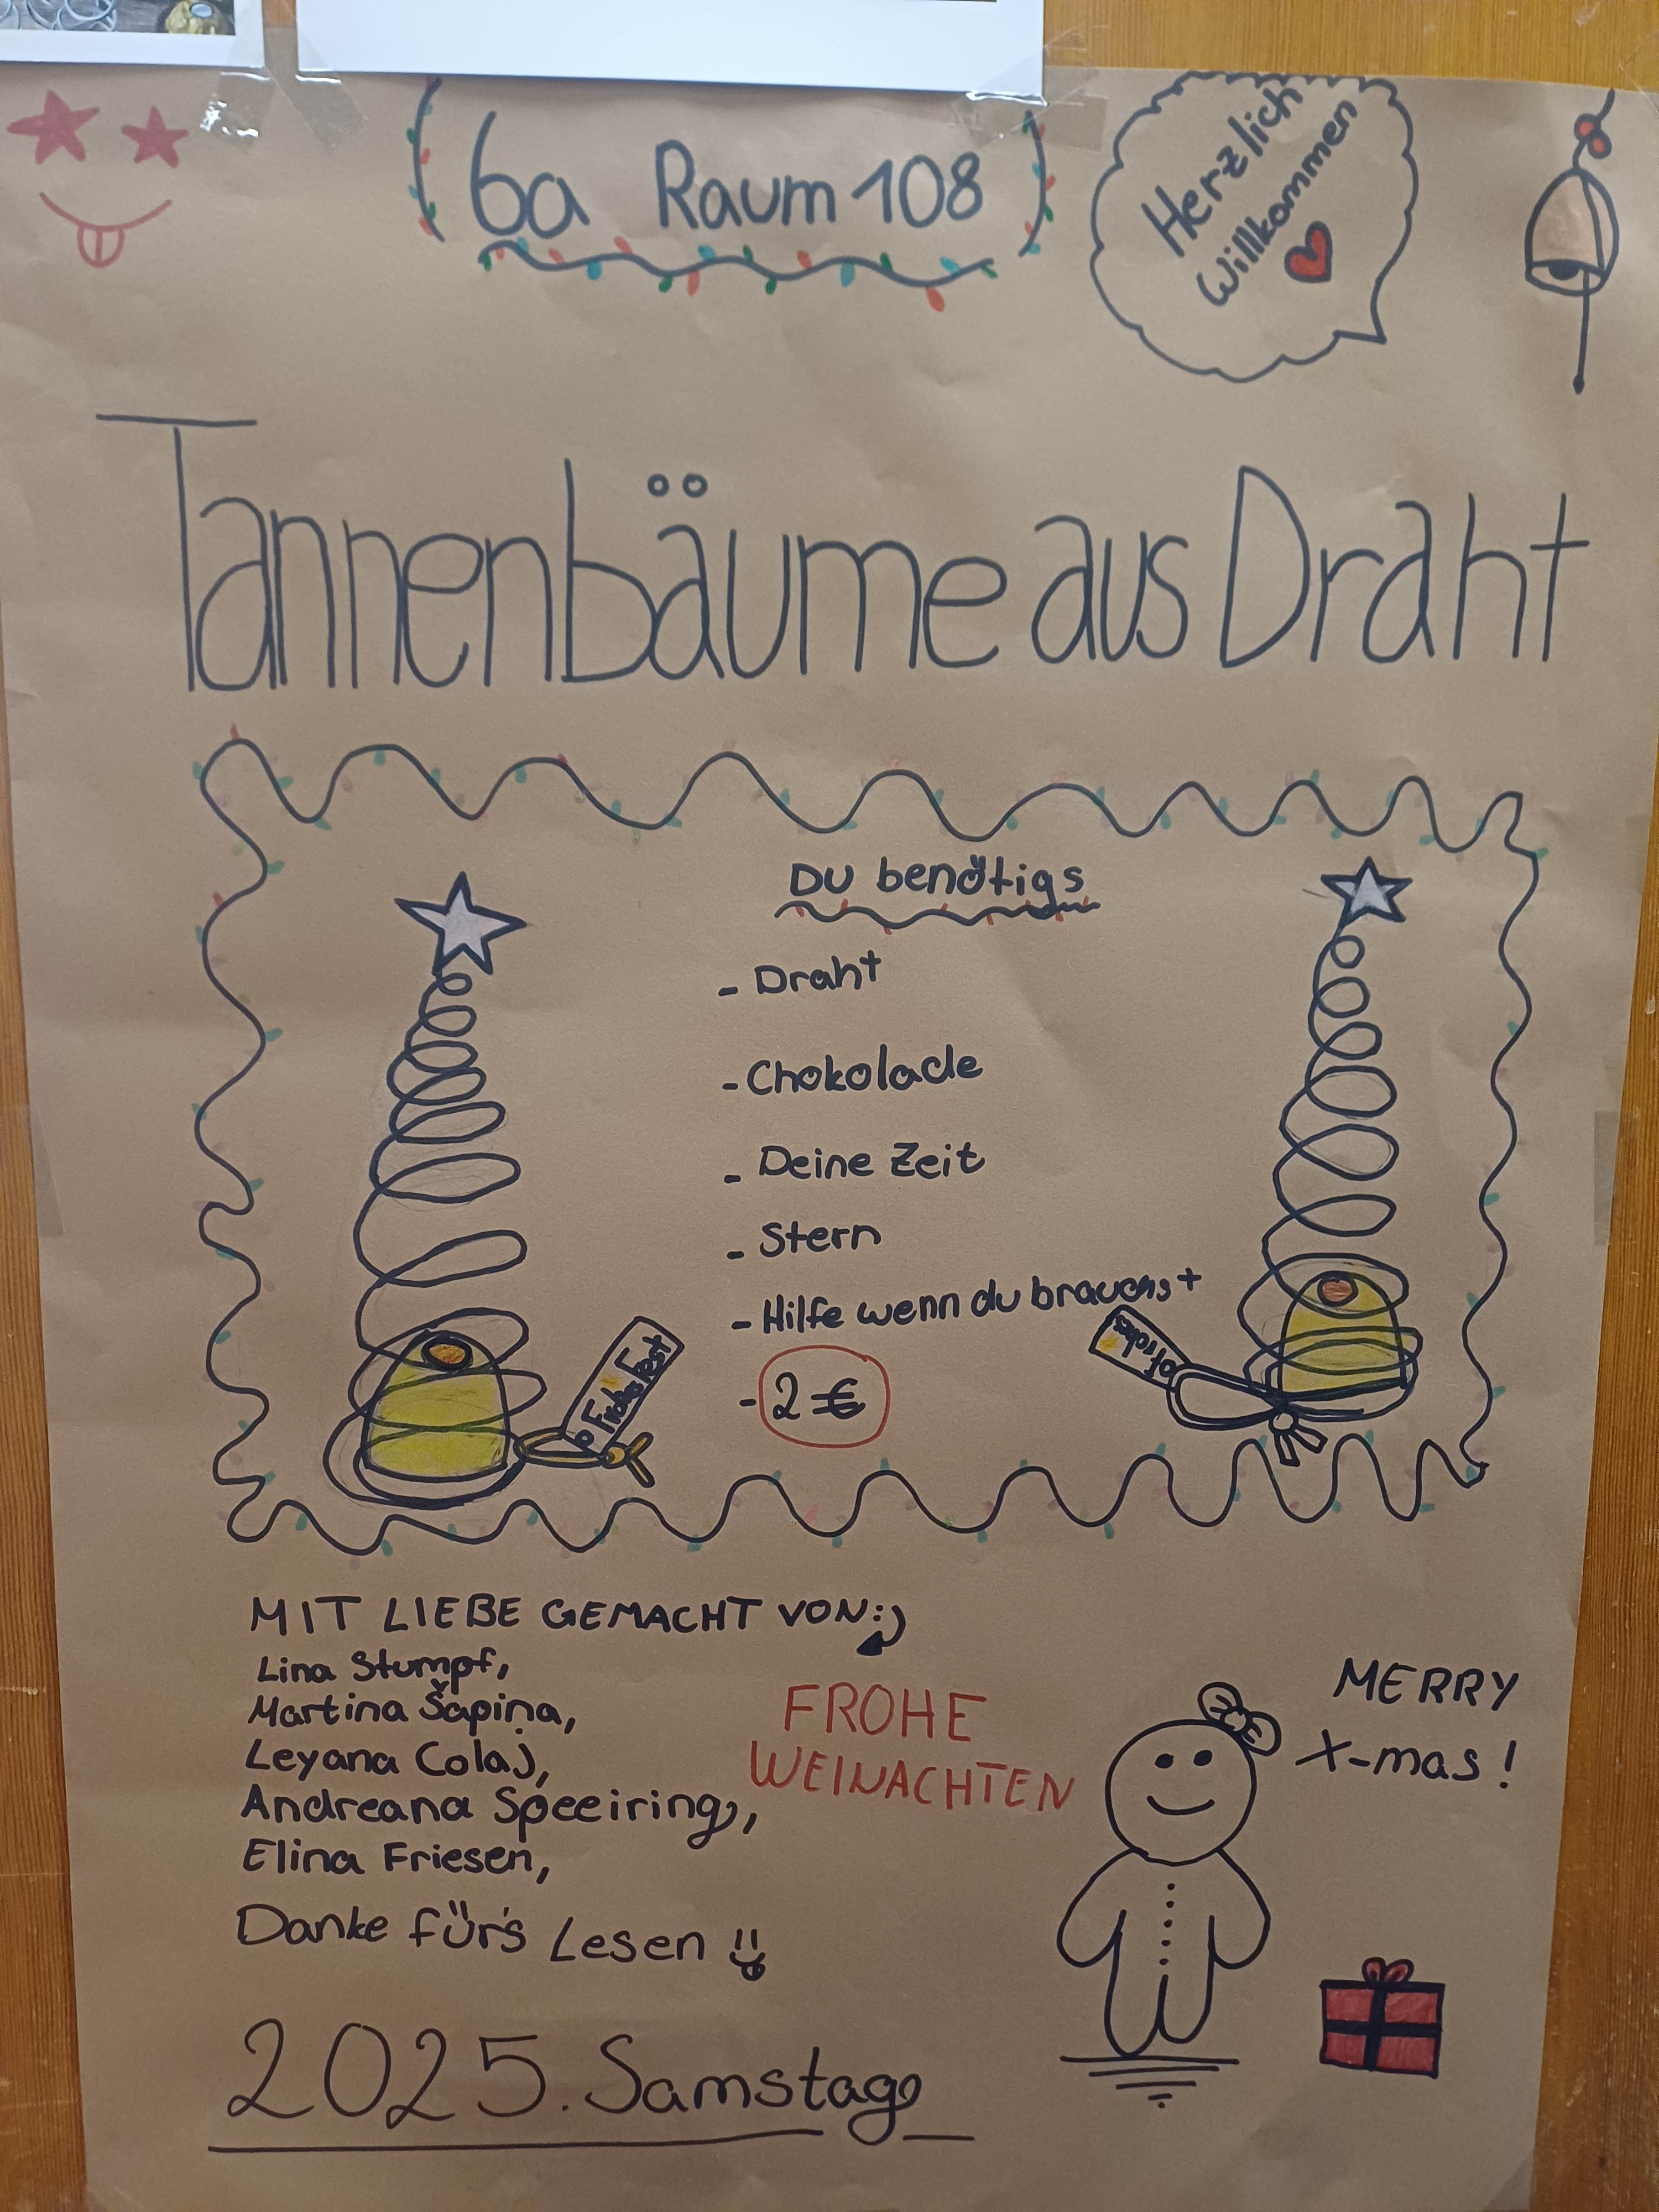 6a Raum 108
Herzlich
Willkommen
Tannenbäume aus Draht
Du benötigs
- Draht
- Chokolade
- Deine Zeit
- Stern
- Hilfe wenn du brauchst
- 2 €
Frohes Fest
Frohes
MIT LIEBE GEMACHT VON:
Lina Stumpf,
Martina Šapina,
Leyana Colaj,
Andreana Speeiring,
Elina Friesen,
FROHE
WEINACHTEN
MERRY
X-mas!
Danke für's Lesen
2025. Samstag